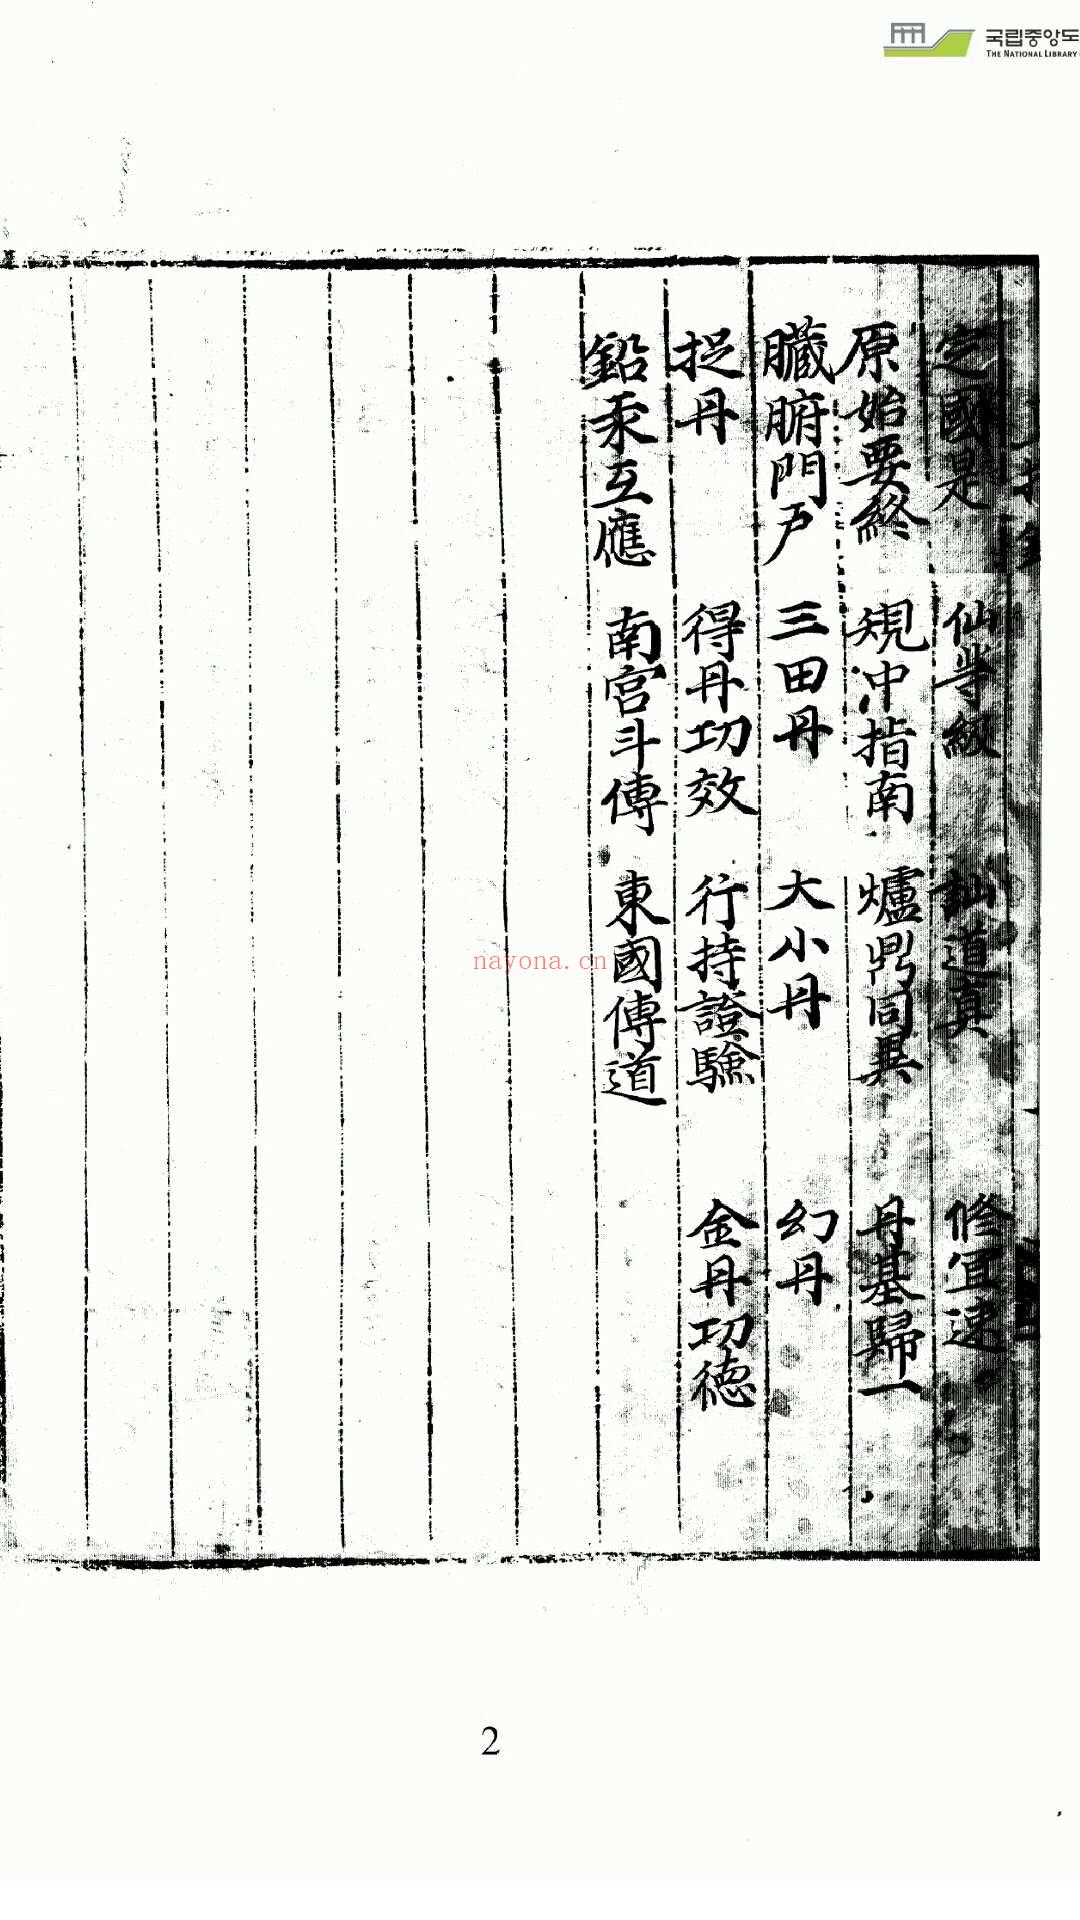 국립중앙도
THE NATIONAL LIBRARY
定國是 仙等級 訕道真 修宜速
原始要終 規冲指南 爐鼎同異 丹基歸一
臟腑門戶 三田丹 大小丹 幻丹
捉丹 得丹功效 行持證驗 金丹功德
鉛汞互應 南宮斗傳 東國傳道
nayona.cn
2